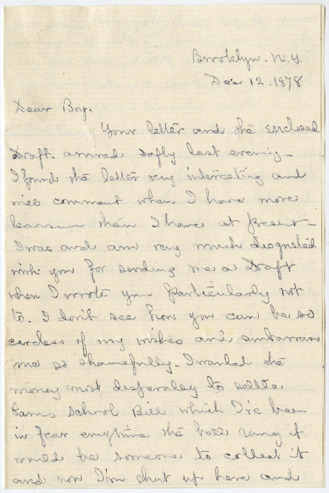 Brooklyn. N.Y.
Dec 12. 1878
Dear Boy.
Your letter and the enclosed
Draft. arrived safly last evening_
I found the letter very interesting and
will comment when I have more
leasure than I have at present_
I was and am very much disgusted
with you for sending me a Draft
when I wrote you particularly not
to. I don't see how you can be so
careless of my wishes and embarrass
me so shamefully_ I wanted the
money most desperately to settle
Sam's School Bill which I've been
in fear everytime the bell rang it
would be someone to collect it
and now I'm shut up here and